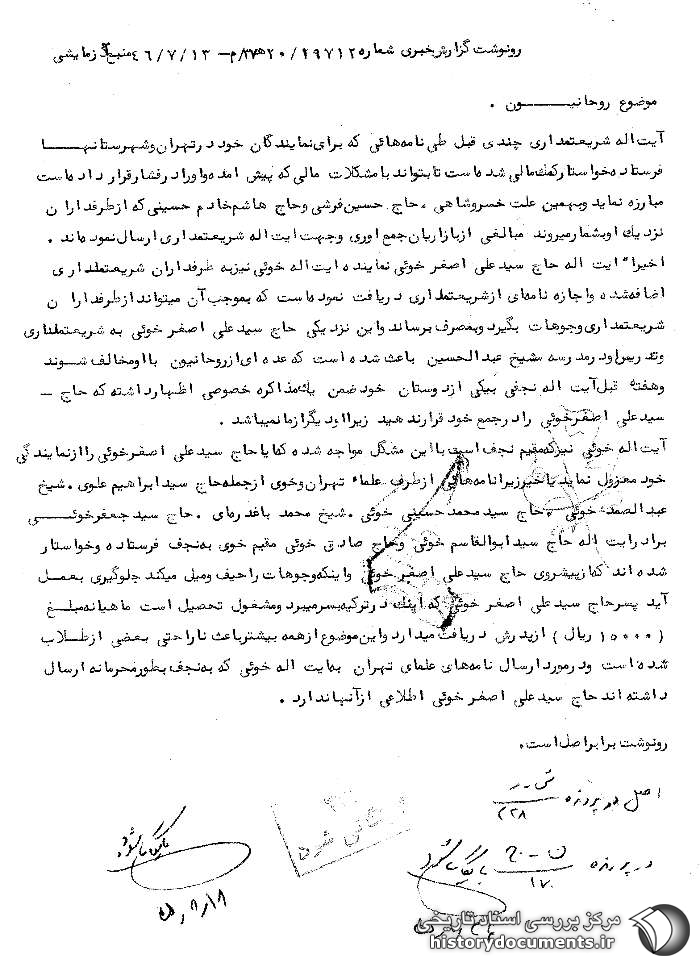 رونوشت گزارش خبری شماره ۲۹۷۱۲ / ۲۰ ه‍ ۲۷ /م - ۴۶/۷/۱۳ منبع آزمایشی
موضوع روحانیـــون .
آیت اله شریعتمداری چندی قبل طی نامه هائی که برای نمایندگان خود در تهران و شهرستانهـا
فرستاده خواستار کمک مالی شده است تا بتواند با مشکلات مالی که پیش امده و او را در فشار قرار داده است
مبارزه نماید و بهمین علت خسروشاهی . حاج حسین فرشی و حاج هاشم خادم حسینی که از طرفداران
نزدیک او بشمار میروند مبالغی از بازاریان جمع اوری و جهت ایت اله شریعتمداری ارسال نموده اند .
اخیرا" ایت اله حاج سید علی اصغر خوئی نماینده ایت اله خوئی نیز به طرفداران شریعتمداری
اضافه شده و اجازه نامه ای از شریعتمداری دریافت نموده است که بموجب آن میتواند از طرفداران
شریعتمداری وجوهات بگیرد و بمصرف برساند و این نزدیکی حاج سید علی اصغر خوئی به شریعتمداری
و تدریس او در مدرسه شیخ عبدالحسین باعث شده است که عده ای از روحانیون با او مخالف شوند
و هفته قبل آیت اله نجفی بیکی از دوستان خود ضمن یک مذاکره خصوصی اظهار داشته که حاج -
سید علی اصغر خوئی را در جمع خود قرار ندهید زیرا او دیگر از ما نمیباشد .
آیت اله خوئی نیز که مقیم نجف است با این مشگل مواجه شده که ایا حاج سید علی اصغر خوئی را از نمایندگی
خود معزول نماید یا خیر زیرا نامه هائی از طرف علماء تهران و خوی از جمله حاج سید ابراهیم علوی . شیخ
عبدالصمد خوئی . حاج سید محمد حسینی خوئی . شیخ محمد باغدره ای . حاج سید جعفر خوئـی
برادر ایت اله حاج سید ابوالقاسم خوئی و حاج صادق خوئی مقیم خوی به نجف فرستاده و خواستار
شده اند که از پیشروی حاج سید علی اصغر خوئی و اینکه وجوهات را حیف و میل میکند جلوگیری بعمل
آید پسر حاج سید علی اصغر خوئی که اینک در ترکیه بسر میبرد و مشغول تحصیل است ماهیانه مبلغ
( ۱۵۰۰۰ ریال ) از پدرش دریافت میدارد و این موضوع از همه بیشتر باعث ناراحتی بعضی از طلاب
شده است و در مورد ارسال نامه های علمای تهران به ایت اله خوئی که به نجف بطور محرمانه ارسال
داشته اند حاج سید علی اصغر خوئی اطلاعی از آنها ندارد .
رونوشت برابر اصل است .
اصل در پرونده ش-ر ۲۲۸
در پرونده ن - ج ۱۷۰ بایگانی شود
بایگانی شود
مرکز بررسی اسناد تاریخی
historydocuments.ir